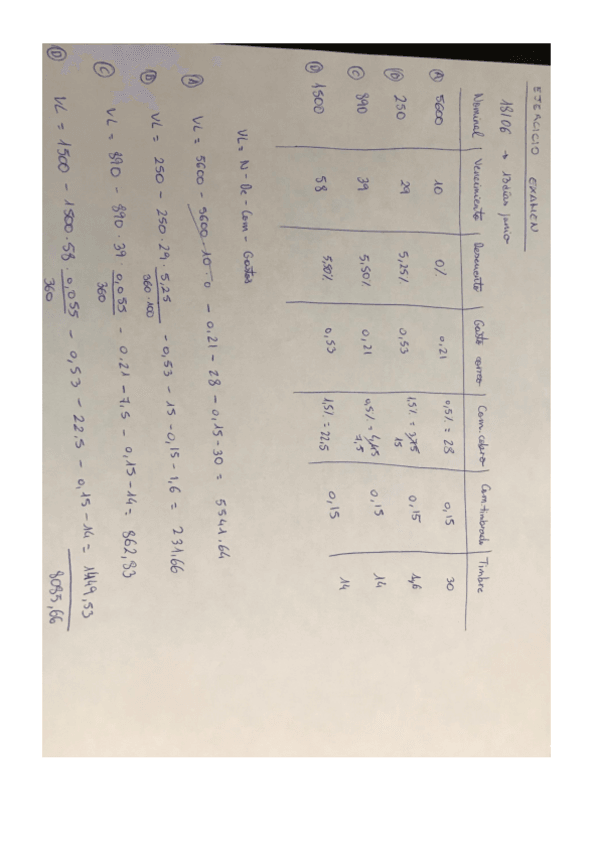 EJERCICIO EXAMEN
18/06 → 13 días junio
Nominal | Vencimiento | Descuento | Gasto correo | Com. cobro | Com. timbrada | Timbre
Ⓐ 5600 10 0% 0,21 0,5% = 28 0,15 30
Ⓑ 250 29 5,25% 0,53 1,5% = 3,75 0,15 1,6
15
Ⓒ 890 39 5,50% 0,21 0,5% = 4,45 0,15 14
7,5
Ⓓ 1500 58 5,50% 0,53 1,5% = 22,5 0,15 14
VL = N - Dc - Com - Gastos
Ⓐ VL = 5600 - 5600 · 10 · 0 - 0,21 - 28 - 0,15 - 30 = 5541.64
Ⓑ VL = 250 - 250 · 29 · 5,25 - 0,53 - 15 - 0,15 - 1,6 = 231,66
360 · 100
Ⓒ VL = 890 - 890 · 39 · 0,055 - 0,21 - 7,5 - 0,15 - 14 = 862,83
360
Ⓓ VL = 1500 - 1500 · 58 · 0,055 - 0,53 - 22,5 - 0,15 - 14 = 1449,53
360
8085,66